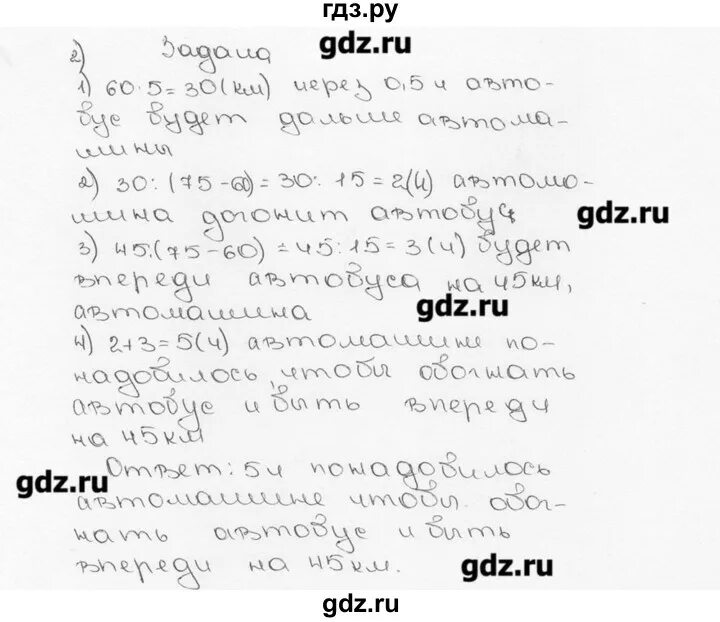 гдз.ру
2) Задача
gdz.ru
1) 60·5=30(км) через 0,5 ч авто-
бус будет дальше автома-
шины
2) 30:(75-60)=30:15=2(ч) автомо-
шина догонит автобус
gdz.ru
3) 45:(75-60)=45:15=3(ч) будет
впереди автобуса на 45км,
gdz.ru
автомашина
4) 2+3=5(ч) автомашине по-
надобилось, чтобы обогнать
автобус и быть впереди
на 45км
Ответ: 5ч понадобилось
gdz.ru
автомашине чтобы обог-
нать автобус и быть
впереди на 45км.
gdz.ru
gdz.ru